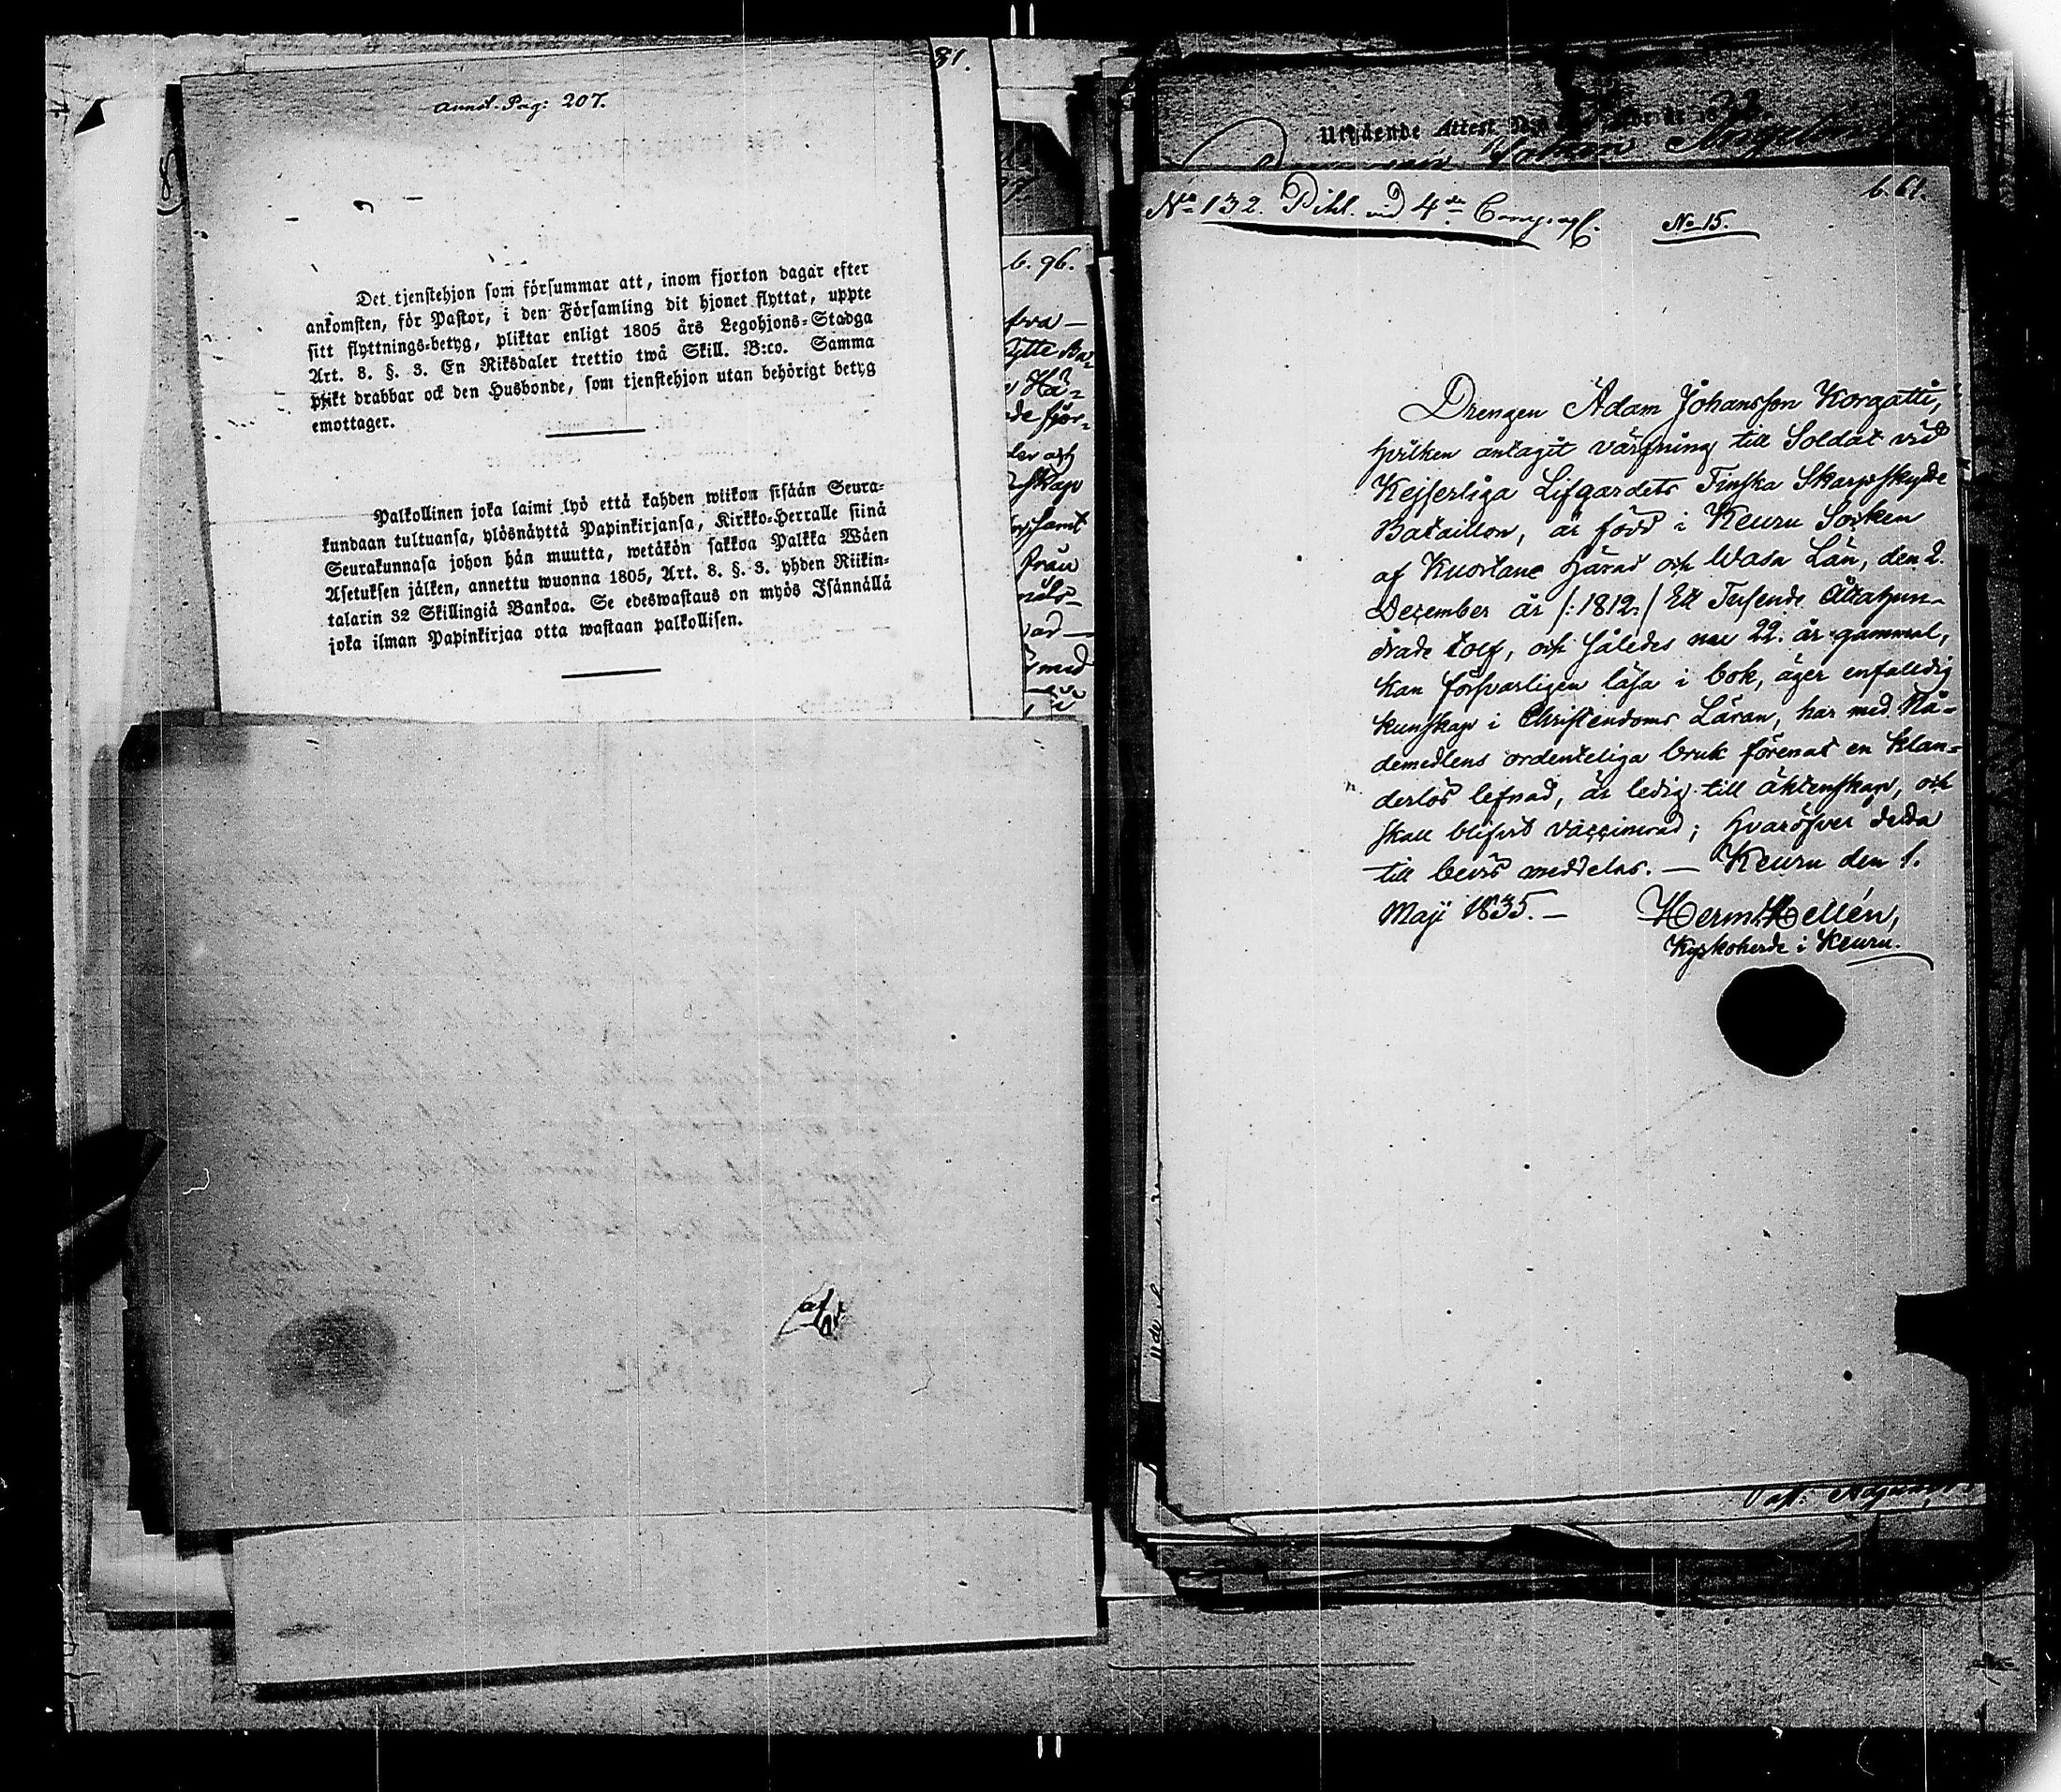 31.
annot. Pag: 207.
Det tjenstehjon som försummar att, inom fjorton dagar efter
ankomsten, för Pastor, i den Församling dit hjonet flyttat, uppte
sitt flyttnings-betyg, pliktar enligt 1805 års Legohjons-Stadga
Art. 8. §. 3. En Riksdaler trettio twå Skill. B:co. Samma
plikt drabbar ock den Husbonde, som tjenstehjon utan behörigt betyg
emottager.
Palkollinen joka laimi lyö että kahden wiikon sisään Seura-
kundaan tultuansa, ylösnäyttä Papinkirjansa, Kirkko-Herralle siinä
Seurakunnasa johon hän muutta, wetäkön sakkoa Palkka Wäen
Asetuksen jälken, annettu wuonna 1805, Art. 8. §. 3. yhden Riikin-
talarin 32 Skillingiä Bankoa. Se edeswastaus on myös Isännällä
joka ilman Papinkirjaa otta wastaan palkollisen.
b. 96.
fva —
Hä-
och
skap
samt
med
Utgående Attest
b. 61.
No 132. Pihl. vid 4de Comp.
No 15.
Drengen Adam Johansson Korgatti,
hvilken antagit värfning till Soldat vid
Kejserliga Lifgardets Finska Skarpskytte
Bataillon, är född i Keuru Socken
af Kuortane Härad och Wasa Län, den 2.
December år /:1812:/ Ett Tusende Åttahun-
drade tolf, och således nu 22. år gammal,
kan försvarligen läsa i bok, äger enfalldig
kunskap i Christendoms Läran, har med Nå-
demedlens ordenteliga bruk förenat en klan-
derlös lefnad, är ledig till äktenskap, och
skall blifvit vaccinerad; hvaröfver detta
till bevis meddelas. — Keuru den 1.
Maji 1835. — Herm. Hellén,
Kyrkoherde i Keuru.